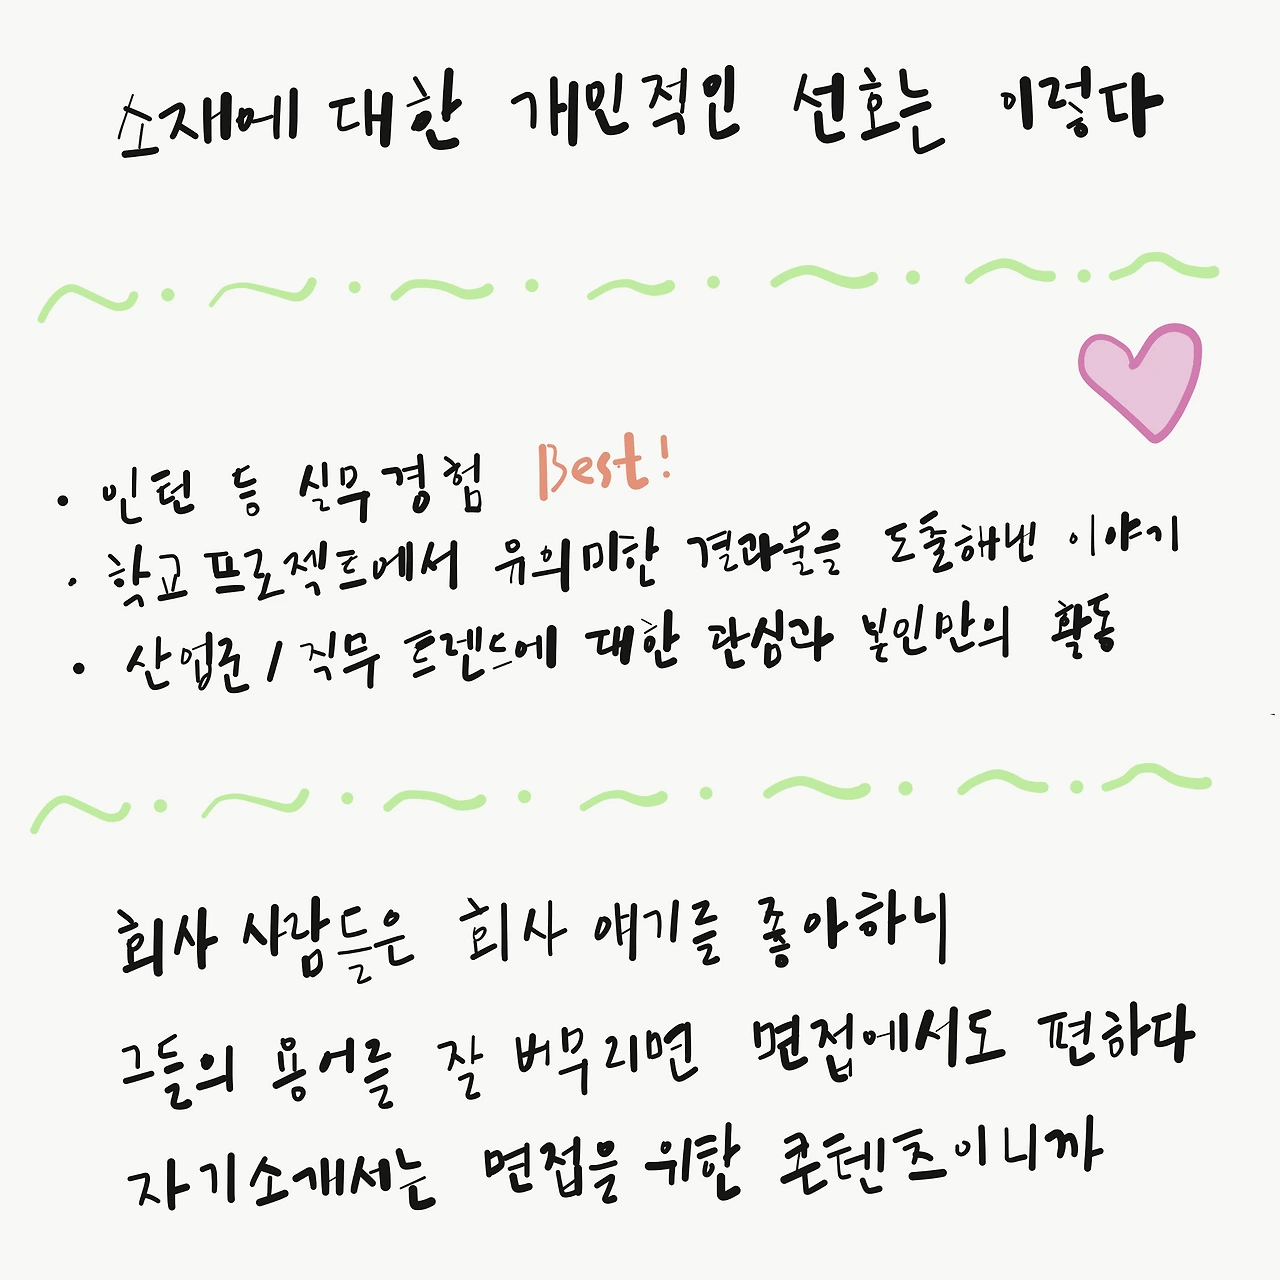 소재에 대한 개인적인 선호는 이렇다
• 인턴 등 실무경험 Best!
• 학교 프로젝트에서 유의미한 결과물을 도출해낸 이야기
• 산업군 / 직무 트렌드에 대한 관심과 본인만의 활동
회사 사람들은 회사 얘기를 좋아하니
그들의 용어를 잘 버무리면 면접에서도 편하다
자기소개서는 면접을 위한 콘텐츠이니까